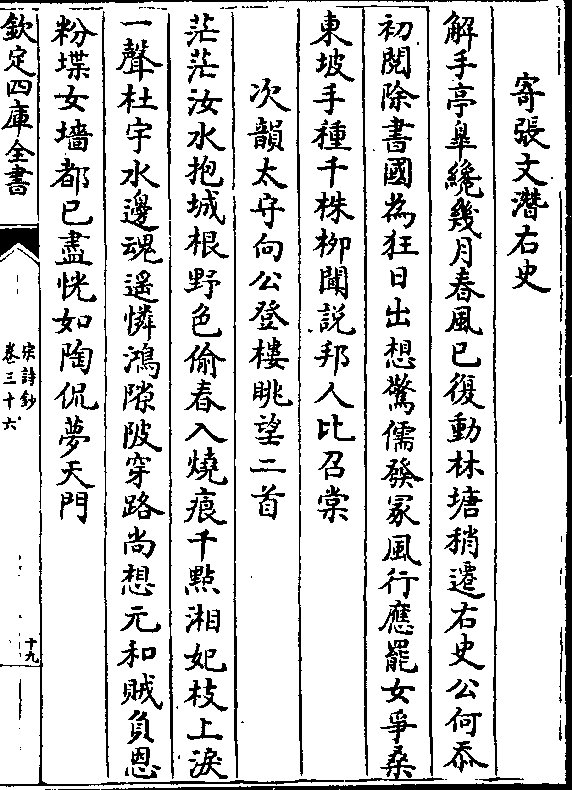 寄張文潛右史
解手亭臯纔幾月春風已復動林塘稍遷右史公何忝
初閱除書國為狂日出想驚儒發冢風行應罷女爭桑
東坡手種千株栁聞說邦人比召棠
次韻太守向公登樓眺望二首
茫茫汝水抱城根野色偷春入燒痕千點湘妃枝上淚
一聲杜宇水邊魂遥憐鴻隙陂穿路尚想元和賊負恩
粉堞女墻都已盡恍如陶侃夢天門
欽定四庫全書
宋詩鈔
卷三十六
十九